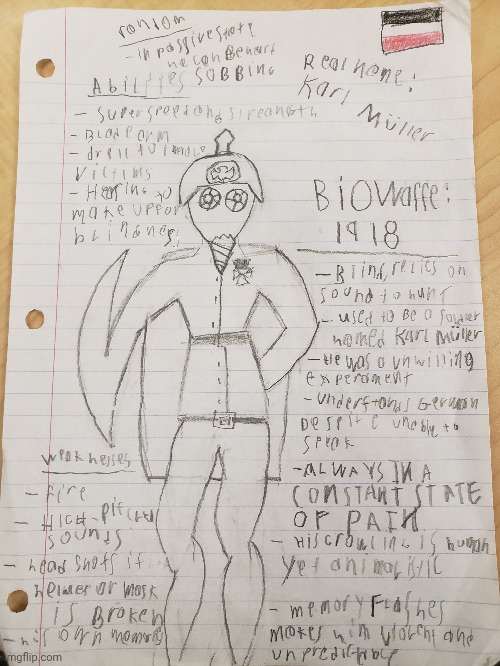 random
- in passive state
he can be heart
SOBBING
Abilities
- super speed and strength
- Blade arm
- drill to impale
victims
- Hearing to
make up for
blindness
Real name:
Karl
Müller
BiOWaffe:
1918
- Blind, relies on
sound to hunt
- used to be a soldier
named Karl Müller
- He was a unwilling
experament
- Understands German
Despite unable to
speak
- ALWAYS IN A
CONSTANT STATE
OF PAIN
- His growling is human
yet animalistic
- memory Flashes
makes him violent and
unpredictable
weaknesses
- fire
- High-pitched
sounds
- head shots if
helmet or mask
is Broken
- his own memory
imgflip.com